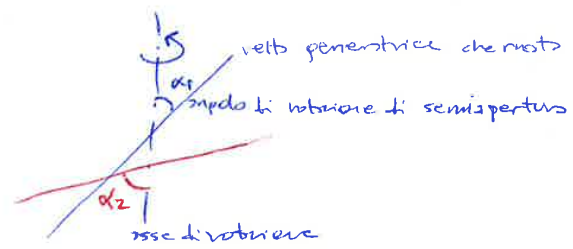 retta generatrice che ruota
α1
angolo di rotazione di semiapertura
α2
asse di rotazione